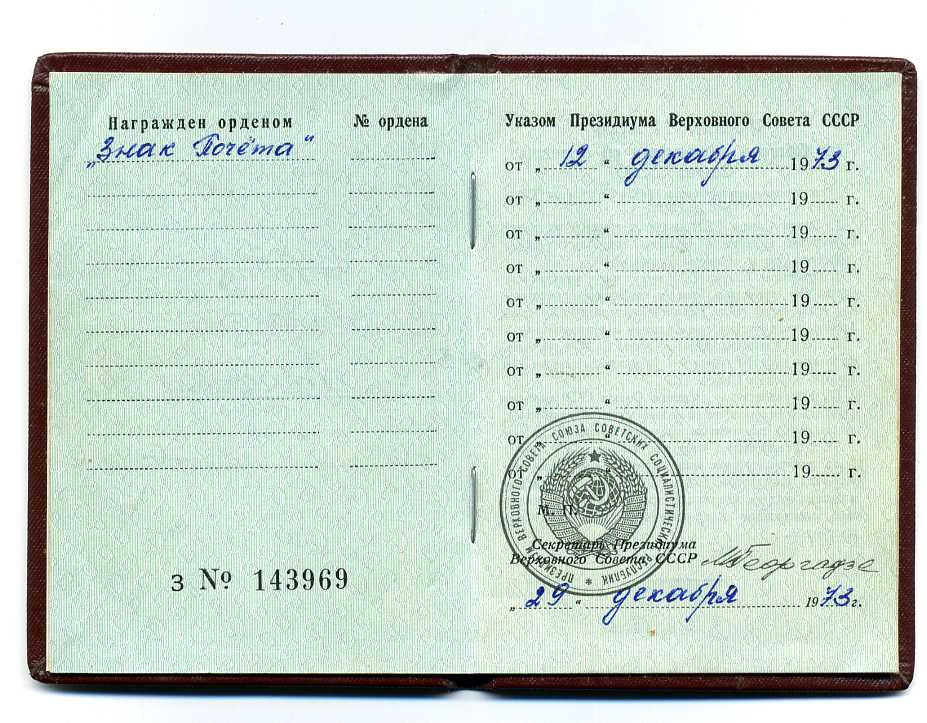 Награжден орденом № ордена
„Знак Почёта“
З № 143969
Указом Президиума Верховного Совета СССР
от „ 12 “ декабря 1973 г.
от „ “ 19 г.
от „ “ 19 г.
от „ “ 19 г.
от „ “ 19 г.
от „ “ 19 г.
от „ “ 19 г.
от „ “ 19 г.
от „ “ 19 г.
от „ “ 19 г.
ПРЕЗИДИУМ ВЕРХОВНОГО СОВЕТА СОЮЗА СОВЕТСКИХ СОЦИАЛИСТИЧЕСКИХ РЕСПУБЛИК
М. П.
Секретарь Президиума
Верховного Совета СССР МГеоргадзе
„ 29 “ декабря 1973 г.